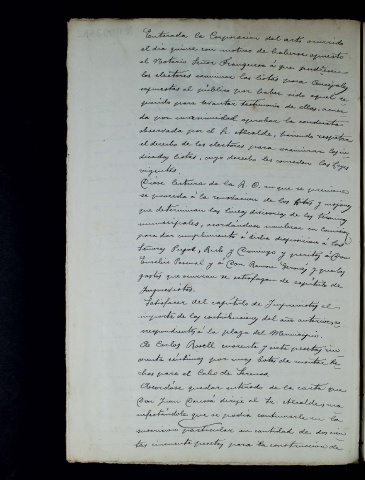 Enterada la Corporacion del acto ocurrido
el dia quince con motivo de haberse opuesto
el Notario Señor Franquesa á que pudiesen
los electores examinar las listas para Concejales
expuestas al público por haber sido aquel re-
querido para levantar testimonio de ellas, acuer-
da por unanimidad aprobar la conducta
observada por el Sr. Alcalde, haciendo respetar
el derecho de los electores para examinar las in-
dicadas listas, cuyo derecho les conceden las Leyes
vigentes.
Dióse lectura de la R. O. en que se previene
se proceda á la renovacion de los hitos y mojones
que determinan las lineas divisorias de los términos
municipales, acordándose nombrar en Comision
para dar cumplimiento á dicha disposicion á los
Señores Pujol, y Domingo y peritos á Don
Eusebio Pascual y á Don Ramon y que los
gastos que ocurran se satisfagan de capítulo de
Imprevistos.
Satisfacer del capítulo de Imprevistos el
importe de las contribuciones del año anterior, co-
rrespondientes á la plaza del
A Carlos Rosell cuarenta y siete pesetas cin-
cuenta céntimos por unos
para el Cabo de Serenos.
Acordóse quedar enterado de la carta que
Don Juan dirije al Sr. Alcalde, ma-
nifestándole que se podia continuarle en la
suscricion particular en cantidad de doscien-
tas cincuenta pesetas para la construccion de